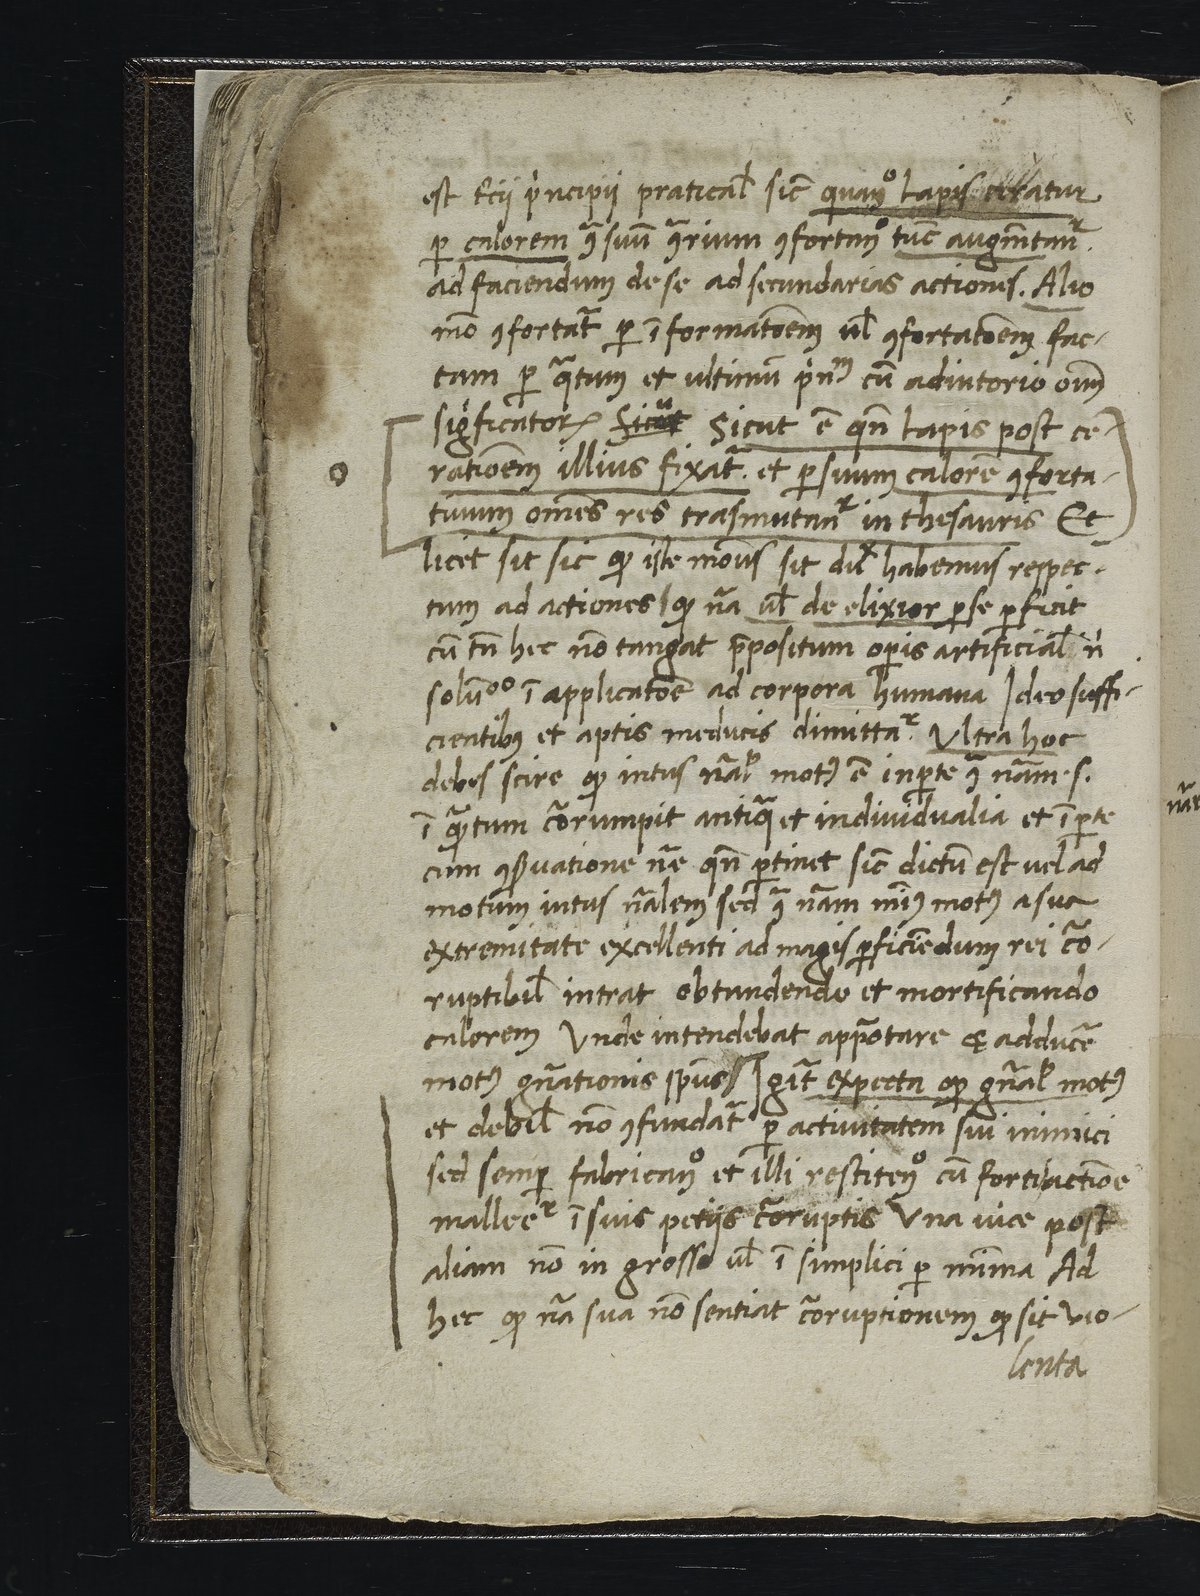 est tcij prīcipij pratical sic quanº Lapis ceratur
p calorem ꝯ suū ꝯrium ꝯfortanº tūc augmētanr.
ad faciendum de se ad secundarias actiones. Alio
mō ꝯfortat̄ p īformatōem ul ꝯfortatōem fac-
tam p q̄tum et ultimū prīnm cū adiutorio oiūm
significatoꝝ Sicut ē qn Lapis post ce-
rationem illius fixat̄. et p suum calorē ꝯforta-
tiuum omēs res trāsmutanr in thesauris Et
licet sit sic qꝫ iste modus sit dul habemus respec-
tum ad actiones qꝫ nā ul de elixior p se pficit
cū tn hec nō tangat ppositum opis artificial ni
solū ī applicatōe ad corpora humana Ideo suffi-
cientibꝫ et aptis medicis dimittar. Ultra hoc
debes scire qꝫ intus nāl motꝫ ē in pte ꝯ nām .s.
ī q̄tum corumpit antiq̄ et indiuidualia et ī pte
cum ꝯseruatione nē qn ptinet sic dictū est uel ad
motum intus nālem sed ꝯ nām motꝫ a sua
extremitate excellenti ad magis pficiēdum rei co-
ruptibil intrat obtundendo et mortificando
calorem Unde intendebat apportare & adducē
motꝫ gn̄ationis sp̄us Igit̄ expecta qꝫ gn̄al motꝫ
et debil nō ꝯfundat̄ p actiuitatem sui inimici
sed semp fabricanº et illi restitenº cū forti actiōe
malleer ī suis petijs coruptis Una uice post
aliam nō in grosso ul ī simplici p minima Ad
hec qꝫ nā sua nō sentiat coruptionem qꝫ sit uio-
lenta